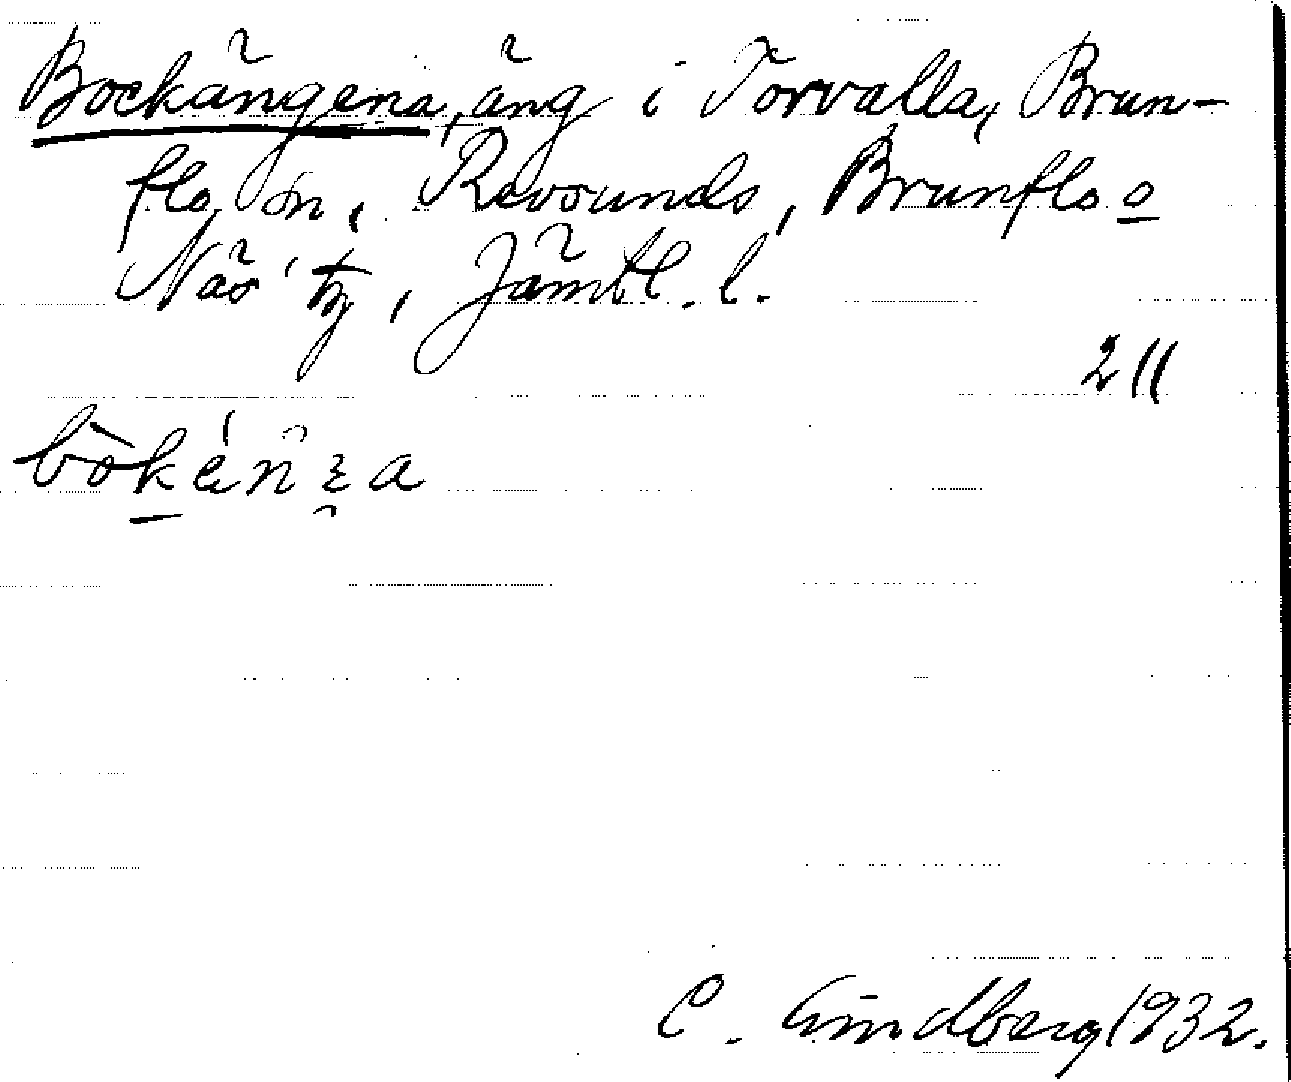 Bockängena, äng i Torvalla, Brun-
flo sn, Revsunds, Brunflo o
Näs' tg, Jämtl. l.
211
C. Lindberg 1932.